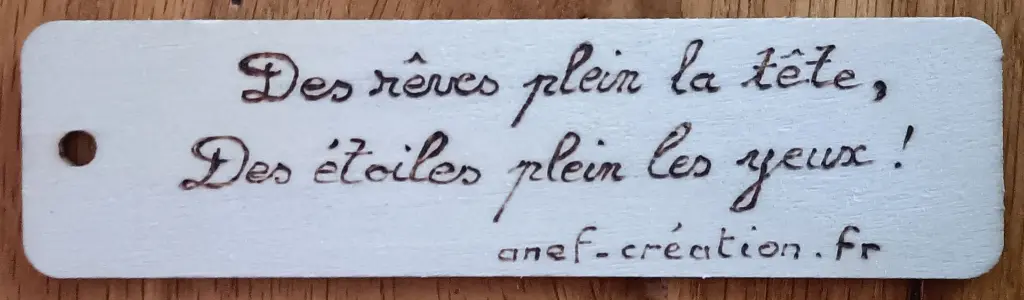 Des rêves plein la tête,
Des étoiles plein les yeux !
anef-création.fr